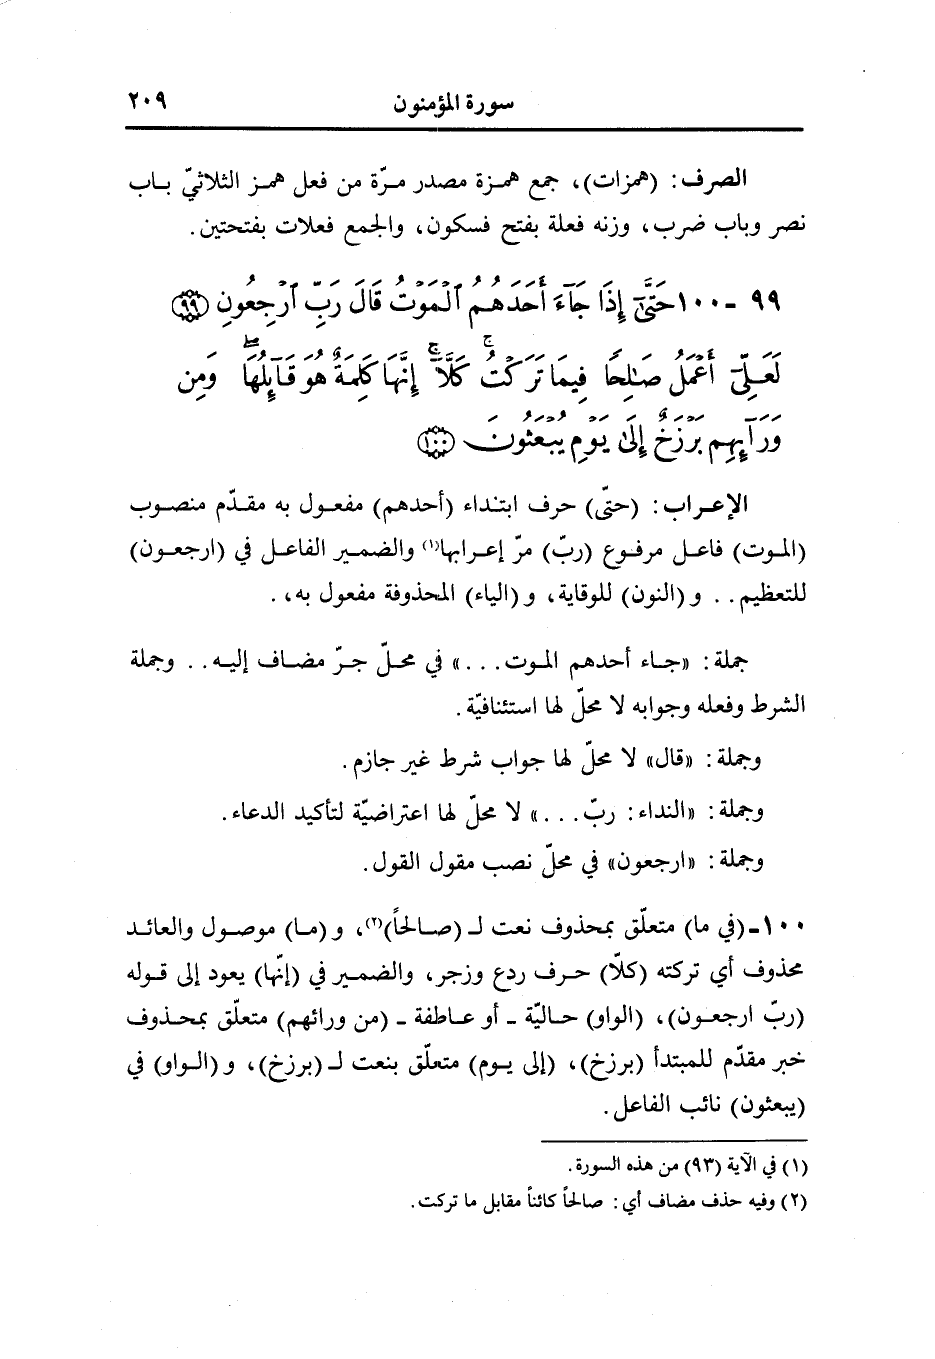 سورة المؤمنون ٢٠٩
الصرف: (همزات)، جمع همزة مصدر مرّة من فعل همز الثلاثيّ باب
نصر وباب ضرب، وزنه فعلة بفتح فسكون، والجمع فعلات بفتحتين.
٩٩ - ١٠٠ حَتَّىٰٓ إِذَا جَآءَ أَحَدَهُمُ ٱلْمَوْتُ قَالَ رَبِّ ٱرْجِعُونِ ﴿٩٩﴾
لَعَلِّىٓ أَعْمَلُ صَٰلِحًا فِيمَا تَرَكْتُ ۚ كَلَّآ ۚ إِنَّهَا كَلِمَةٌ هُوَ قَآئِلُهَا ۖ وَمِن
وَرَآئِهِم بَرْزَخٌ إِلَىٰ يَوْمِ يُبْعَثُونَ ﴿١٠٠﴾
الإعراب: (حتّى) حرف ابتداء (أحدهم) مفعول به مقدّم منصوب
(الموت) فاعل مرفوع (ربّ) مرّ إعرابها(١) والضمير الفاعل في (ارجعون)
للتعظيم.. و(النون) للوقاية، و(الياء) المحذوفة مفعول به،.
جملة: «جاء أحدهم الموت...» في محلّ جرّ مضاف إليه.. وجملة
الشرط وفعله وجوابه لا محلّ لها استئنافيّة.
وجملة: «قال» لا محلّ لها جواب شرط غير جازم.
وجملة: «النداء: ربّ...» لا محلّ لها اعتراضيّة لتأكيد الدعاء.
وجملة: «ارجعون» في محلّ نصب مقول القول.
١٠٠ـ(في ما) متعلّق بمحذوف نعت لـ (صالحاً)(٢)، و(ما) موصول والعائد
محذوف أي تركته (كلّا) حرف ردع وزجر، والضمير في (إنّها) يعود إلى قوله
(ربّ ارجعون)، (الواو) حاليّة ـ أو عاطفة ـ (من ورائهم) متعلّق بمحذوف
خبر مقدّم للمبتدأ (برزخ)، (إلى يوم) متعلّق بنعت لـ (برزخ)، و(الواو) في
(يبعثون) نائب الفاعل.
(١) في الآية (٩٣) من هذه السورة.
(٢) وفيه حذف مضاف أي: صالحاً كائناً مقابل ما تركت.